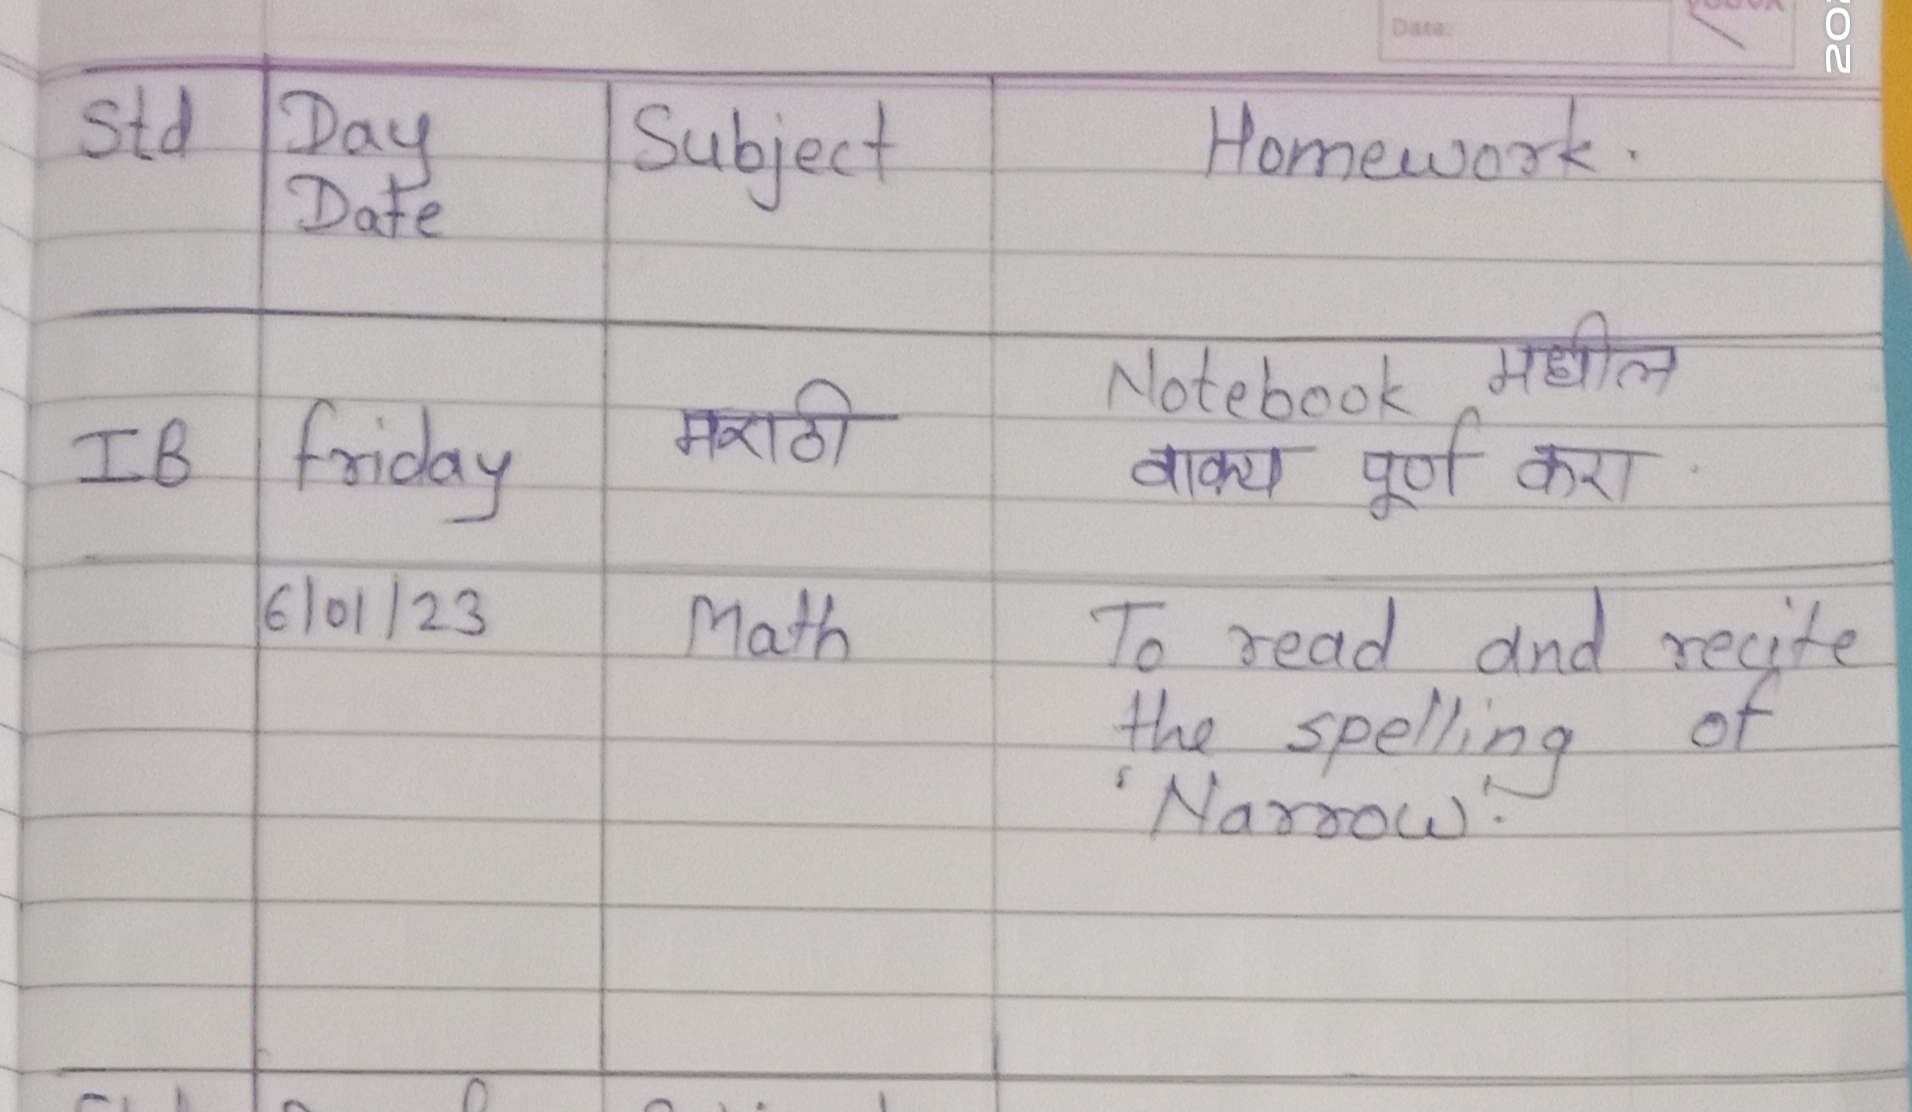 Date:
202
Std Day Subject Homework.
Date
Notebook मधील
IB friday मराठी वाक्य पूर्ण करा.
6/01/23 Math To read and recite
the spelling of
'Narrow'.